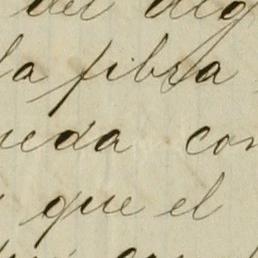 del alg
la fibra
ueda con
que el